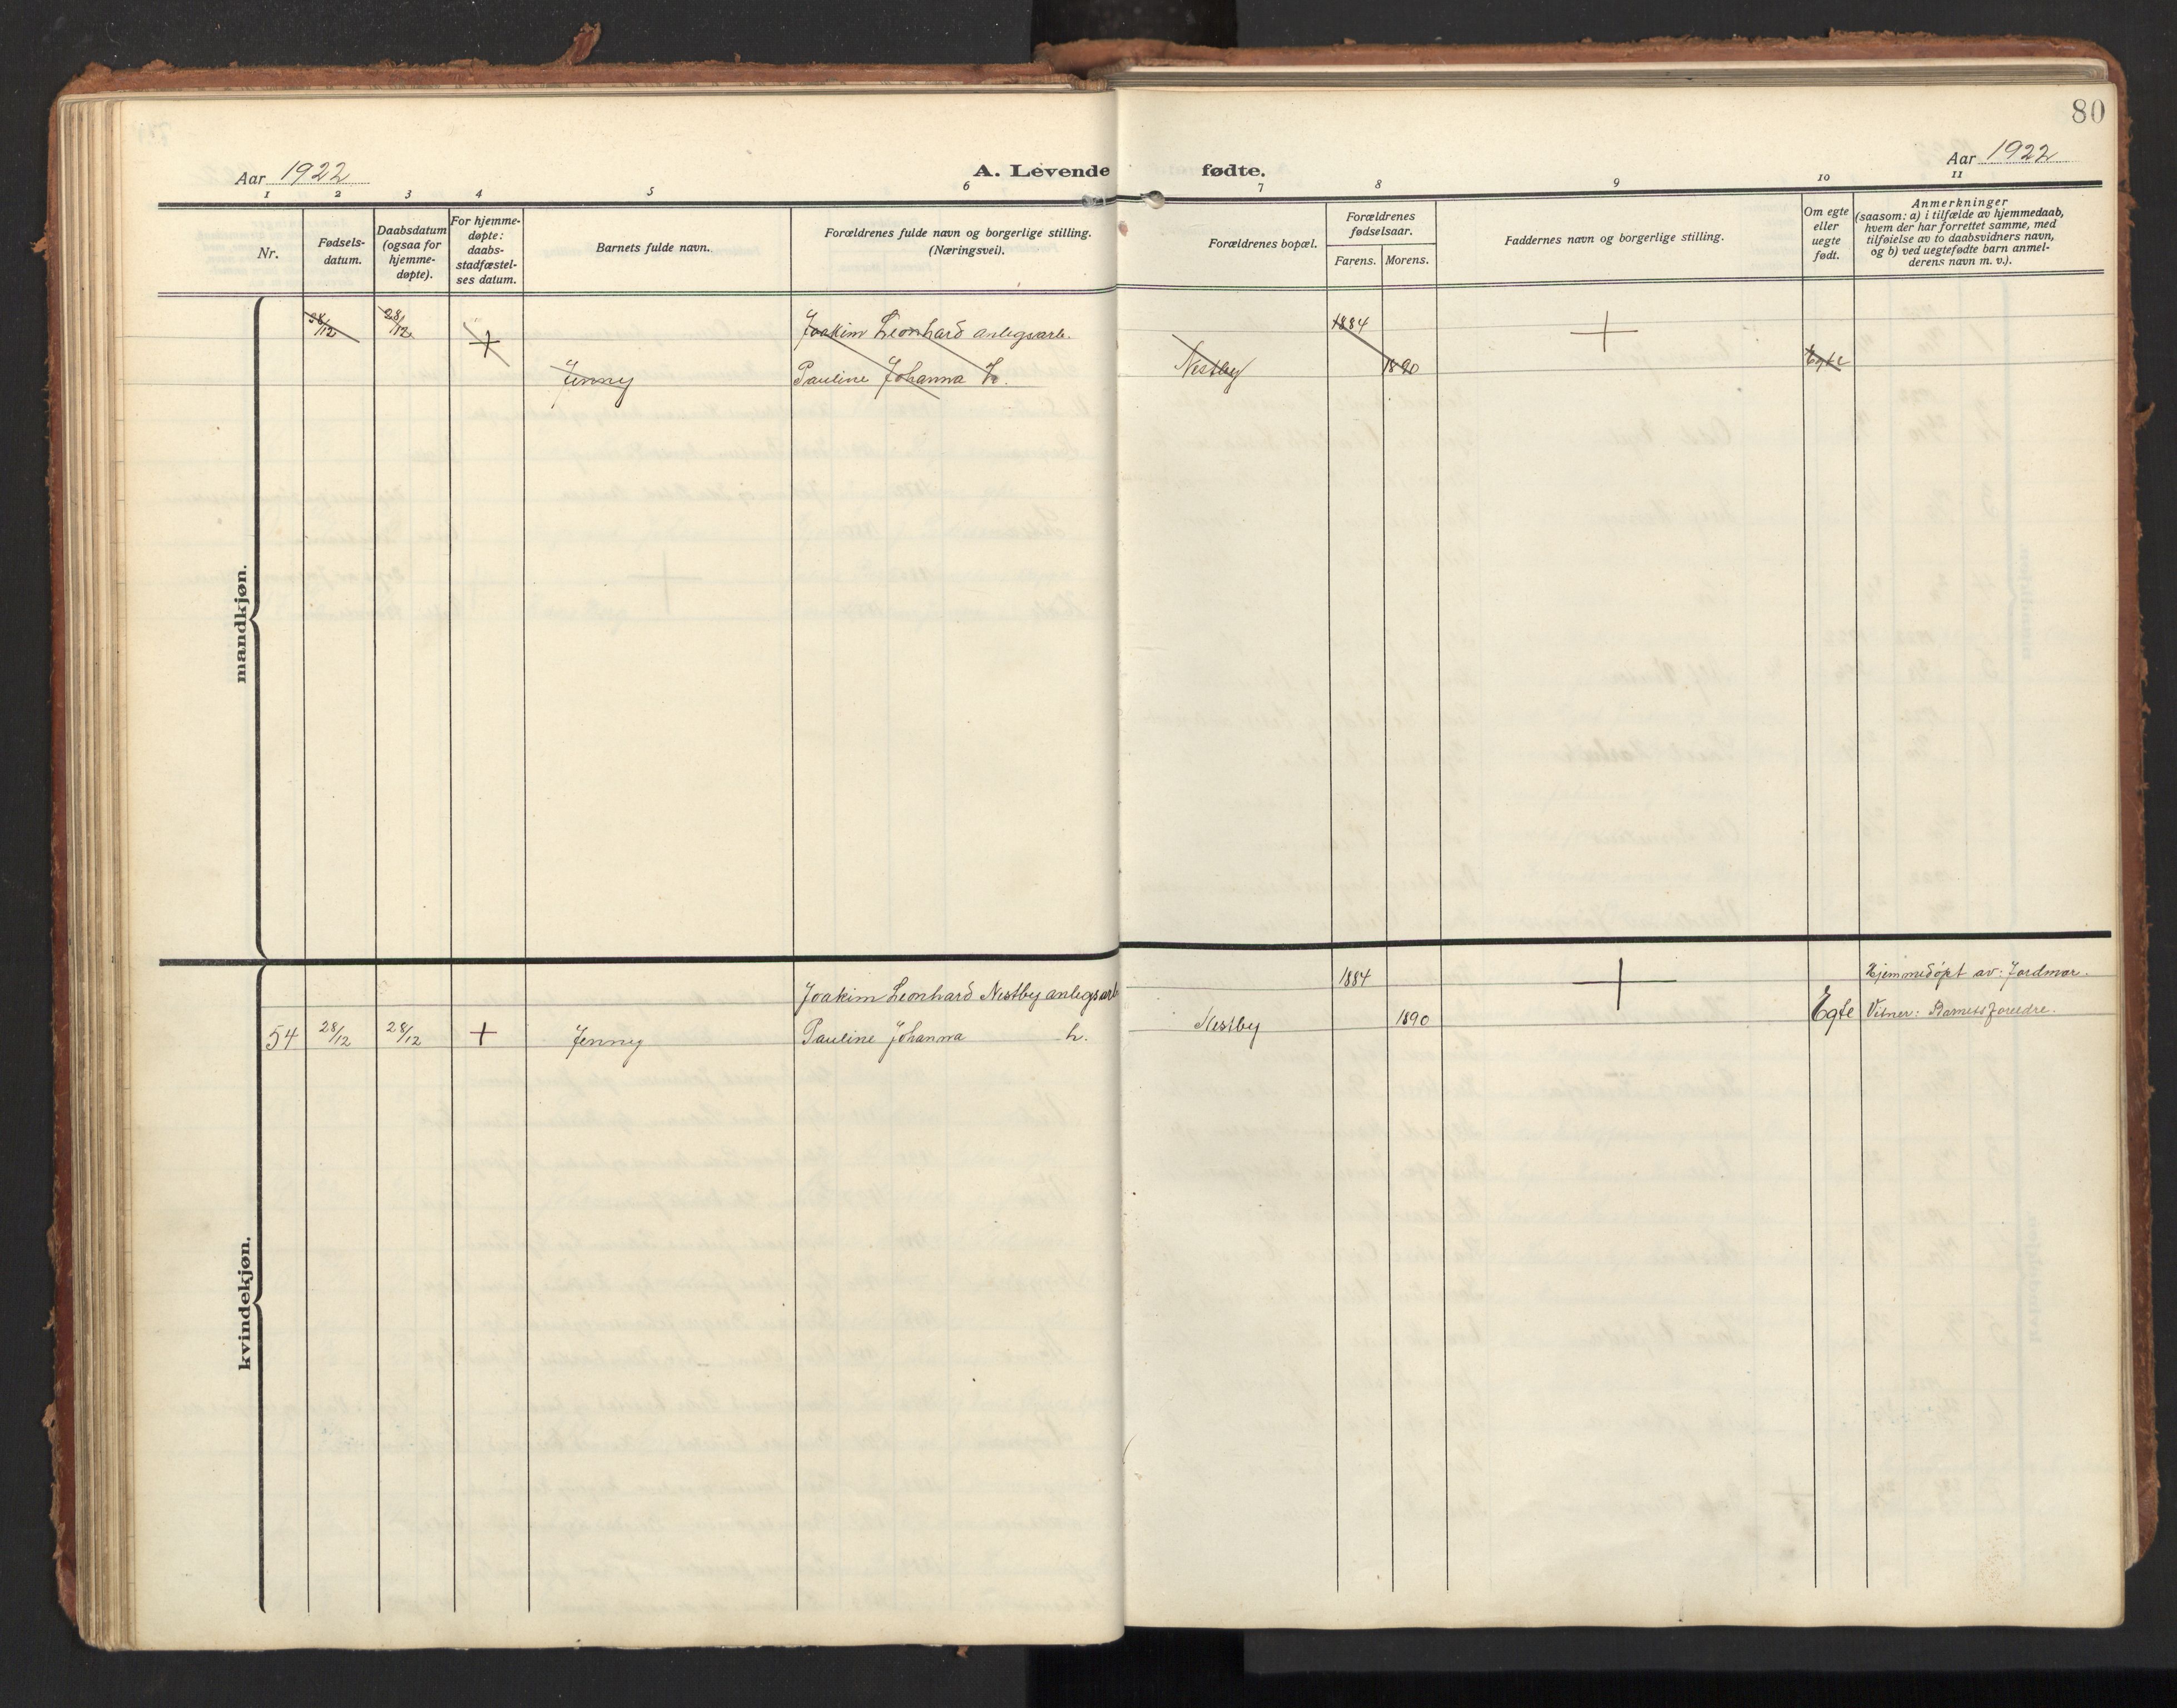 80
Aar 1922
A. Levende fødte.
Aar 1922
1 2 3 4 5 6 7 8 9 10 11
Nr.
Fødsels-
datum.
Daabsdatum
(ogsaa for
hjemme-
døpte).
For hjemme-
døpte:
daabs-
stadfæstel-
ses datum.
Barnets fulde navn.
Forældrenes fulde navn og borgerlige stilling.
(Næringsvei).
Forældrenes bopæl.
Forældrenes
fødselsaar.
Farens. Morens.
Faddernes navn og borgerlige stilling.
Om egte
eller
uegte
født.
Anmerkninger
(saasom: a) i tilfælde av hjemmedaab,
hvem der har forrettet samme, med
tilføielse av to daabsvidners navn,
og b) ved uegtefødte barn anmel-
derens navn m. v.).
mandkjøn.
28/12 28/12 + Joakim Leonhard anlegsarb. 1884 +
Jenny Pauline Johanna h. Nestby 1890 Egte
kvindekjøn.
Joakim Leonhard Nestby anlegsarb 1884 + Hjemmedöpt av: Jordmor.
54 28/12 28/12 + Jenny Pauline Johanna h. Nestby 1890 Egte Vitner: Barnets foreldre.